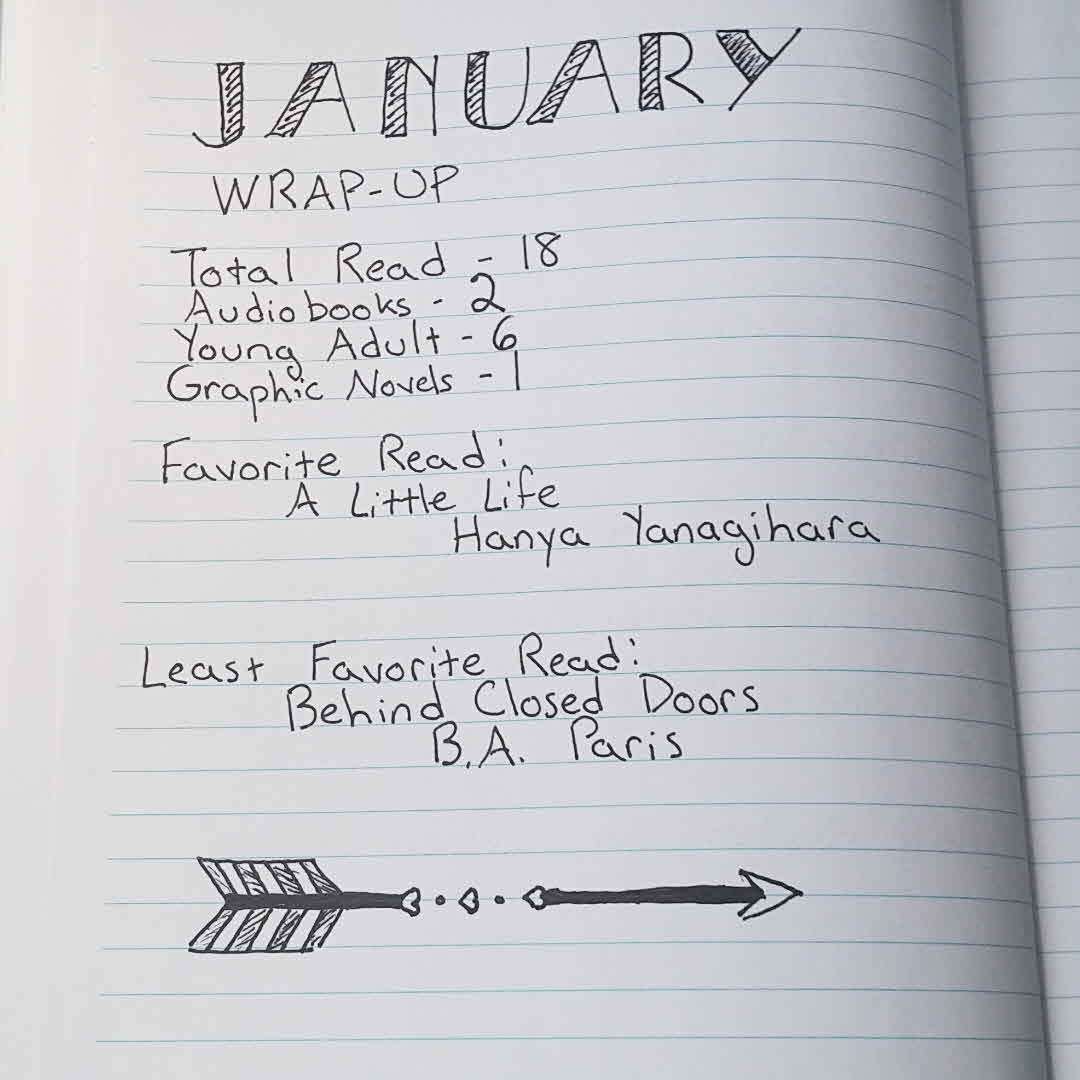 JANUARY
WRAP-UP
Total Read - 18
Audiobooks - 2
Young Adult - 6
Graphic Novels - 1
Favorite Read:
A Little Life
Hanya Yanagihara
Least Favorite Read:
Behind Closed Doors
B.A. Paris